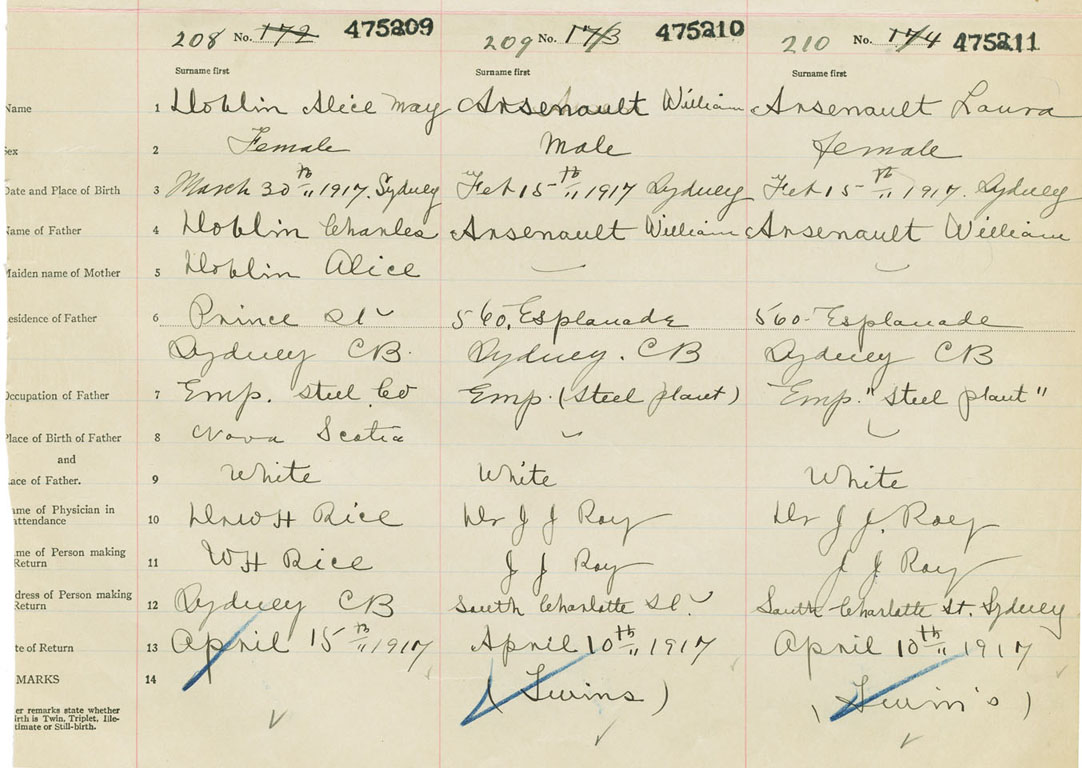 208 No. 172 475209 209 No. 173 475210 210 No. 174 475211
Surname first Surname first Surname first
Name 1 Doblin Alice May Arsenault William Arsenault Laura
Sex 2 Female Male female
Date and Place of Birth 3 March 30th 1917. Sydney Feb 15th 1917 Sydney Feb 15th 1917. Sydney
Name of Father 4 Doblin Charles Arsenault William Arsenault William
Maiden name of Mother 5 Doblin Alice
esidence of Father 6 Prince St 560, Esplanade 560 - Esplanade
Sydney CB. Sydney. CB Sydney CB
Occupation of Father 7 Emp. Steel Co Emp. (Steel plant) Emp. "Steel plant"
Place of Birth of Father 8 Nova Scotia
and
ace of Father. 9 White White White
ame of Physician in
attendance 10 Dr W H Rice Dr J J Roy Dr J J. Roy
me of Person making
Return 11 W H Rice J J Roy J J Roy
dress of Person making
Return 12 Sydney CB South Charlotte St. South Charlotte St. Sydney
te of Return 13 April 15th 1917 April 10th 1917 April 10th 1917
MARKS 14 (Twins) (Twin's)
er remarks state whether
irth is Twin, Triplet, Ille-
timate or Still-birth.